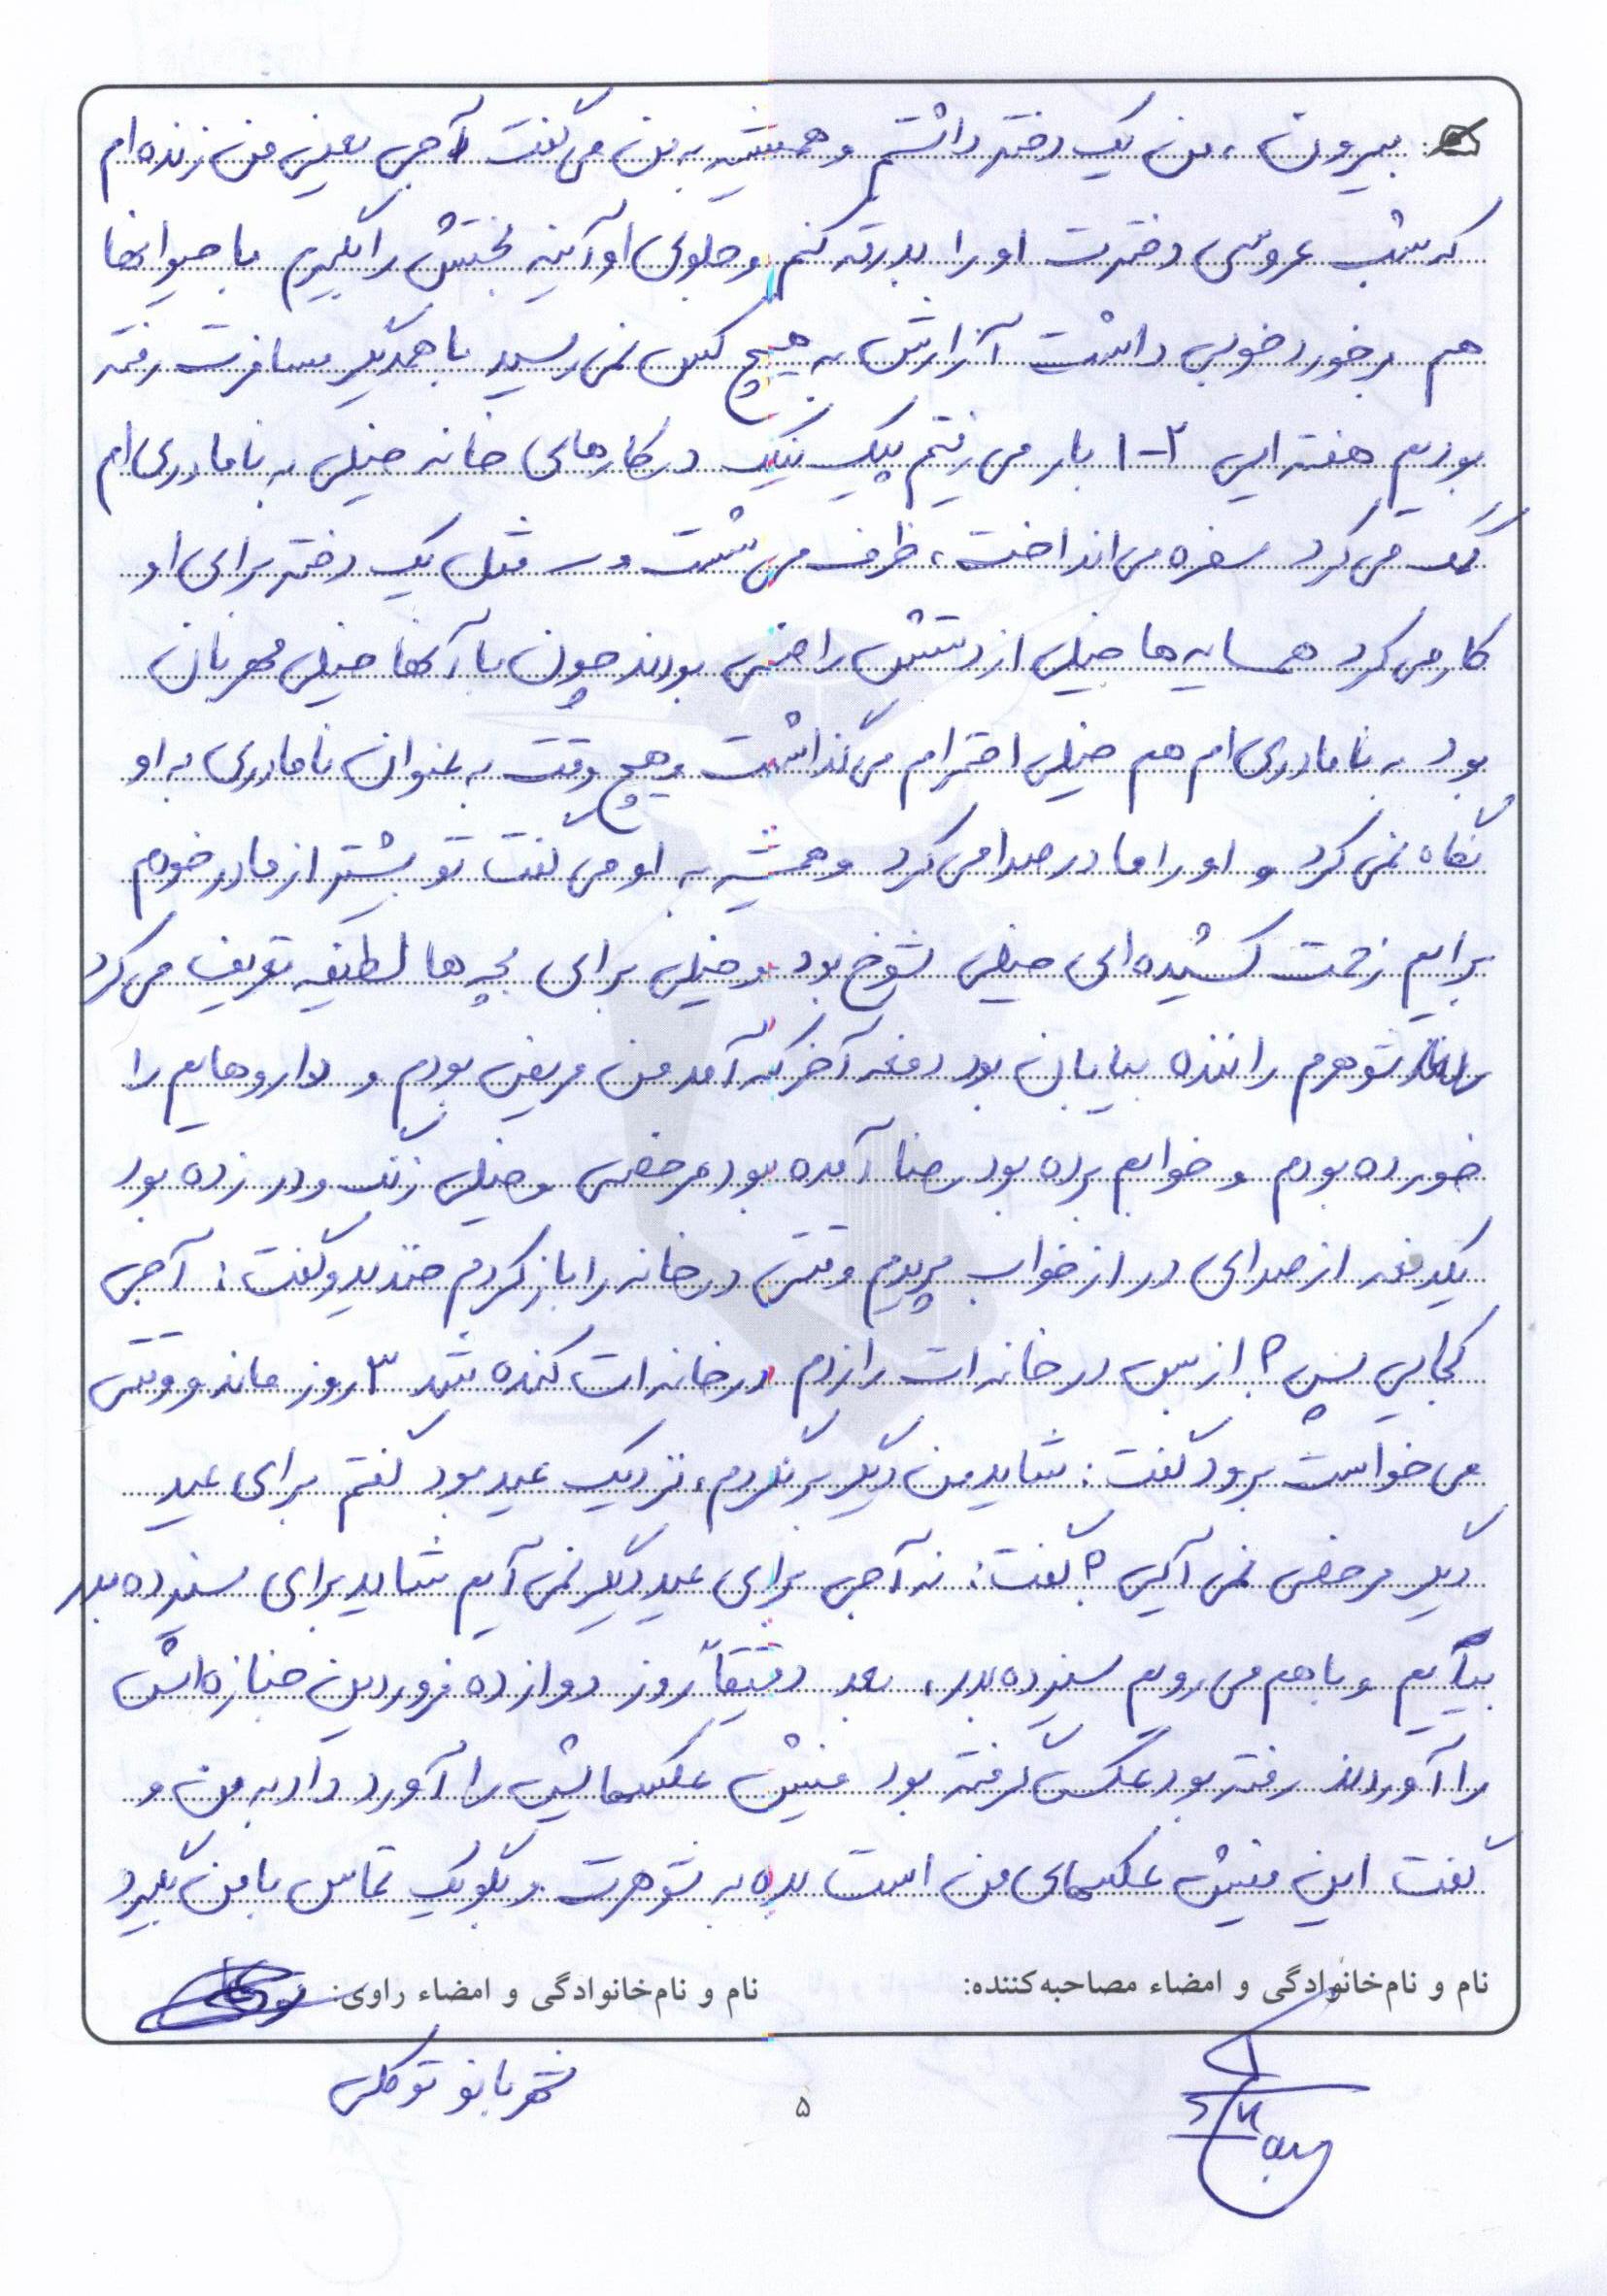 بیرون، من یک دختر داشتم و همیشه به من می گفت آجی یعنی من زنده ام
که شب عروسی دخترت او را بدرقه کنم و جلوی او آئینه بختش را بگیرم با حیوانها
هم برخورد خوبی داشت آزارش به هیچ کس نمی رسید با همدیگر مسافرت رفته
بودیم هفته ایی ۲-۱ بار می رفتم پیک نیک در کارهای خانه خیلی به نامادری ام
کمک می کرد سفره می انداخت، ظرف می شست و مثل یک دختر برای او
کار می کرد همسایه ها خیلی از دستش راضی بودند چون با آنها خیلی مهربان
بود به نامادری ام هم خیلی احترام می گذاشت و هیچ وقت به عنوان نامادری به او
نگاه نمی کرد و او را مادر صدا می کرد و همیشه به او می گفت تو بیشتر از مادر خودم
برایم زحمت کشیده ای خیلی شوخ بود و خیلی برای بچه ها لطیفه تعریف می کرد
شوهرم راننده بیابان بود دفعه آخر که آمد من مریض بودم و داروهایم را
خورده بودم و خوابم برده بود رضا آمده بود مرخصی و خیلی زنگ و در زده بود
یکدفعه از صدای در از خواب پریدم وقتی در خانه را باز کردم خندید و گفت: آجی
کجایی پس؟ از بس در خانه ات را زدم در خانه ات کنده شد ۳ روز ماند و وقتی
می خواست برود گفت: شاید من دیگر برنگردم، نزدیک عید بود گفتم برای عید
دیگر مرخصی نمی آیی؟ گفت: نه آجی برای عید دیگر نمی آیم شاید برای سیزده بدر
بیایم و با هم می رویم سیزده بدر، بعد دقیقاً روز دوازده فروردین جنازه اش
را آوردند رفته بود عکس گرفته بود فیش عکسهایش را آورد داد به من و
گفت این فیش عکسهای من است بده به شوهرت و بگو یک تماس با من بگیرد
نام و نام خانوادگی و امضاء مصاحبه کننده:
نام و نام خانوادگی و امضاء راوی:
شهربانو توکلی
۵